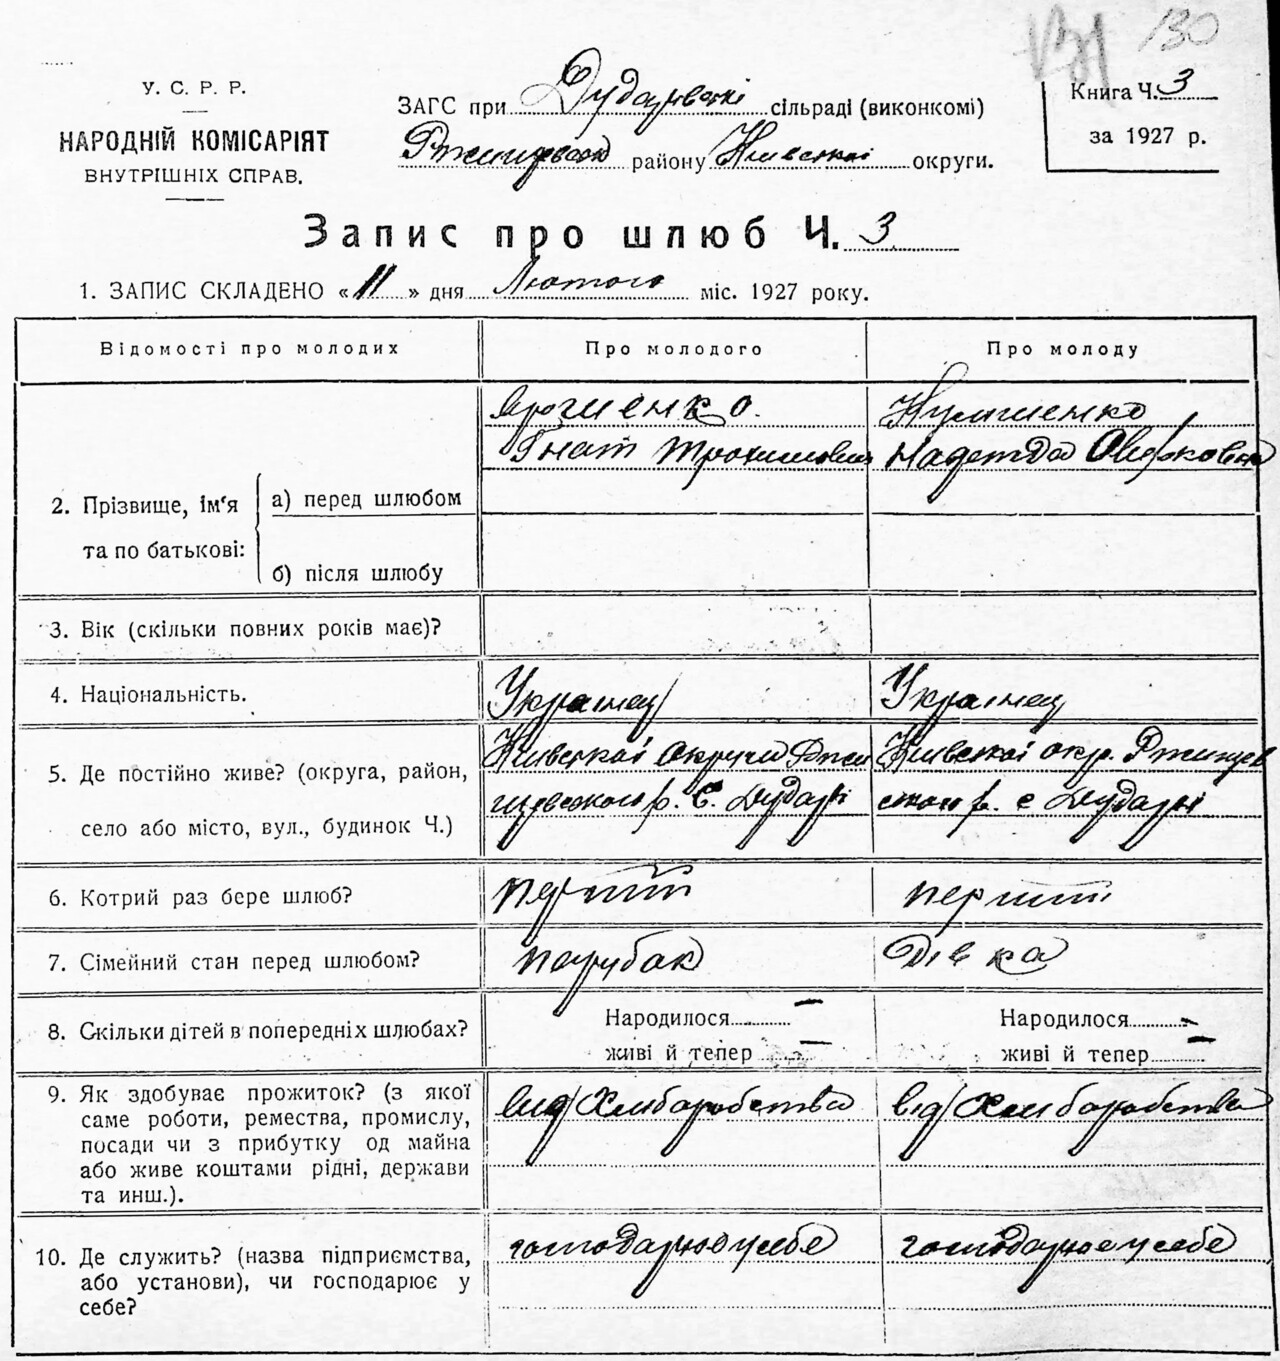 130
У. С. Р. Р.
НАРОДНІЙ КОМІСАРІЯТ
ВНУТРІШНІХ СПРАВ.
ЗАГС при Дударівські сільраді (виконкомі)
району Київської округи.
Книга Ч. 3
за 1927 р.
Запис про шлюб Ч. 3
1. ЗАПИС СКЛАДЕНО « 11 » дня Лютого міс. 1927 року.
Відомості про молодих
Про молодого
Про молоду
2. Прізвище, ім'я та по батькові:
а) перед шлюбом
б) після шлюбу
Гнат Трохимович
Надежда
3. Вік (скільки повних років має)?
4. Національність.
Українец
Українец
5. Де постійно живе? (округа, район,
село або місто, вул., будинок Ч.)
Київської Округи Ржи
щевського р. С. Дударі
Київської окр. Ржищев
ського р. с Дударі
6. Котрий раз бере шлюб?
перший
перший
7. Сімейний стан перед шлюбом?
парубак
Дівка
8. Скільки дітей в попередніх шлюбах?
Народилося —
живі й тепер —
Народилося —
живі й тепер —
9. Як здобуває прожиток? (з якої
саме роботи, ремества, промислу,
посади чи з прибутку од майна
або живе коштами рідні, держави
та инш.).
від Хлиборобства
від Хлиборобства
10. Де служить? (назва підприємства,
або установи), чи господарює у
себе?
господарює у себе
господарює у себе